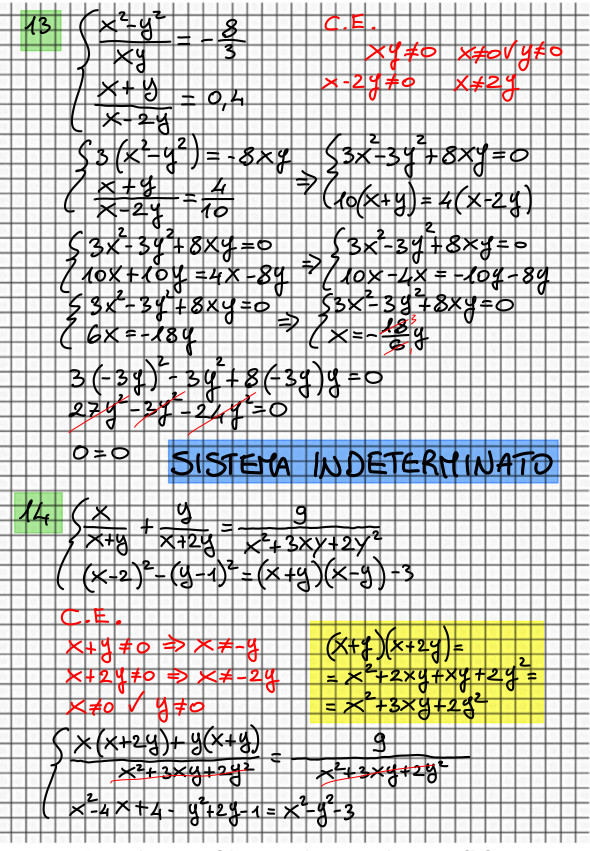 13 { (x²-y²)/(xy) = -8/3
(x+y)/(x-2y) = 0,4
C.E.
xy≠0 x≠0 ∨ y≠0
x-2y≠0 x≠2y
{ 3(x²-y²) = -8xy
(x+y)/(x-2y) = 4/10
⇒ { 3x²-3y²+8xy=0
10(x+y) = 4(x-2y)
{ 3x²-3y²+8xy=0
10x+10y=4x-8y
⇒ { 3x²-3y²+8xy=0
10x-4x=-10y-8y
{ 3x²-3y²+8xy=0
6x=-18y
⇒ { 3x²-3y²+8xy=0
x=-18/6 y 3 1
3(-3y)²-3y²+8(-3y)y=0
27y²-3y²-24y²=0
0=0
SISTEMA INDETERMINATO
14 { x/(x+y) + y/(x+2y) = 9/(x²+3xy+2y²)
(x-2)²-(y-1)²=(x+y)(x-y)-3
C.E.
x+y≠0 ⇒ x≠-y
x+2y≠0 ⇒ x≠-2y
x≠0 ∨ y≠0
(x+y)(x+2y)=
= x²+2xy+xy+2y²=
= x²+3xy+2y²
{ (x(x+2y)+y(x+y))/(x²+3xy+2y²) = 9/(x²+3xy+2y²)
x²-4x+4-y²+2y-1=x²-y²-3